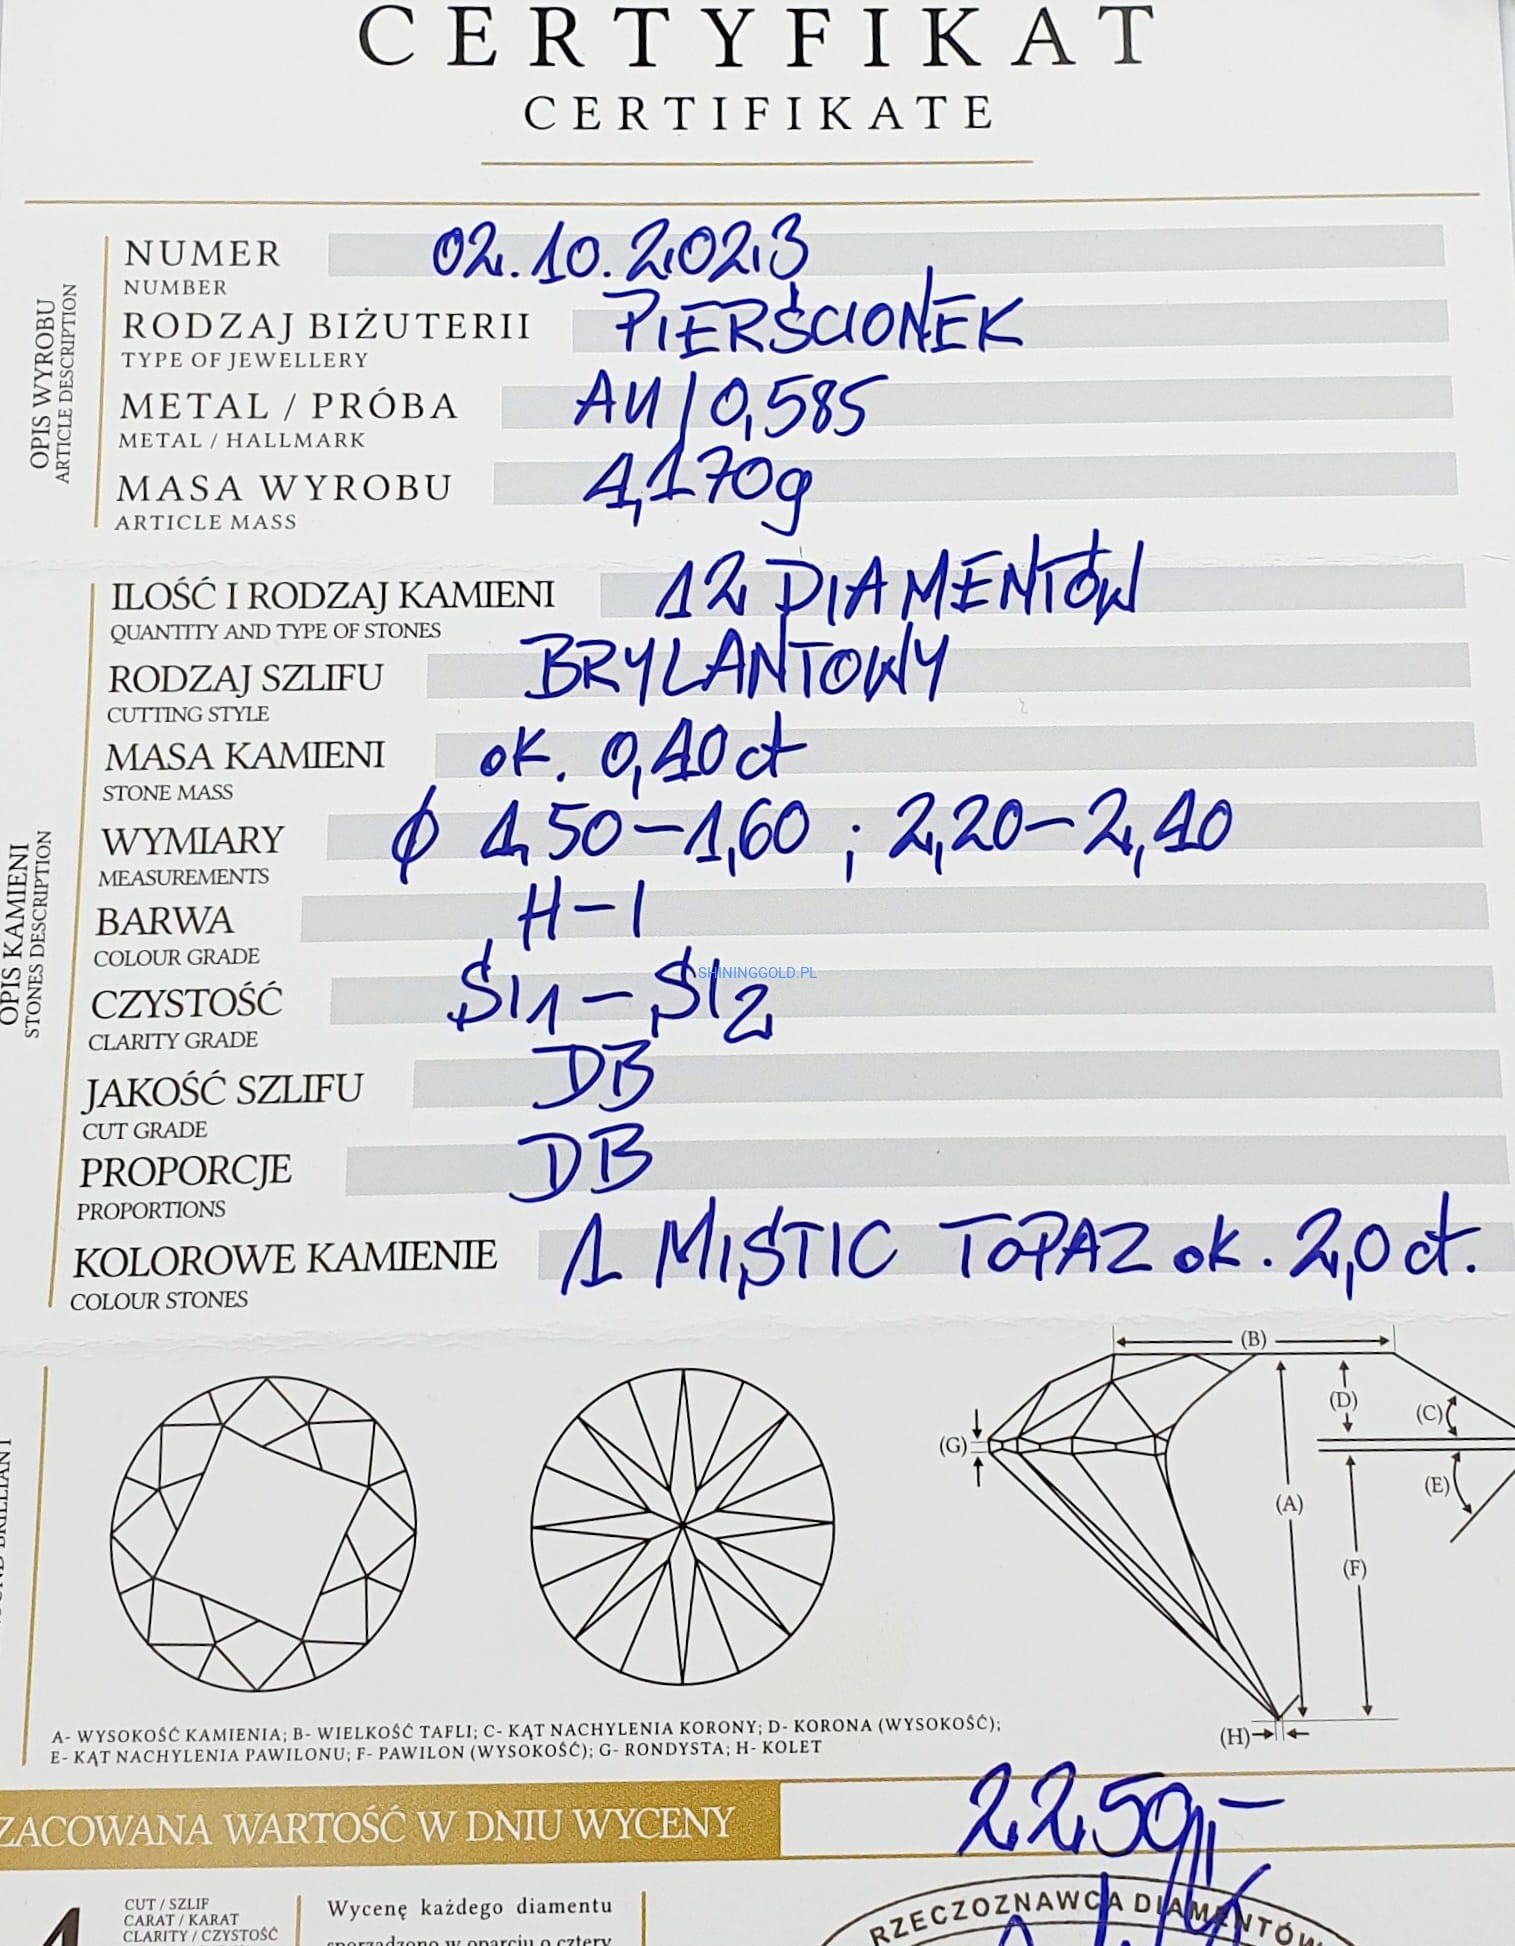 CERTYFIKAT
CERTIFIKATE
NUMER 02.10.2023
NUMBER
RODZAJ BIŻUTERII PIERŚCIONEK
TYPE OF JEWELLERY
METAL / PRÓBA AU/0,585
METAL / HALLMARK
MASA WYROBU 4,170g
ARTICLE MASS
OPIS WYROBU
ARTICLE DESCRIPTION
ILOŚĆ I RODZAJ KAMIENI 12 DIAMENTÓW
QUANTITY AND TYPE OF STONES
RODZAJ SZLIFU BRYLANTOWY
CUTTING STYLE
MASA KAMIENI ok. 0,40 ct
STONE MASS
WYMIARY ϕ 1,50-1,60 ; 2,20-2,40
MEASUREMENTS
BARWA H-I
COLOUR GRADE
CZYSTOŚĆ SI1-SI2
CLARITY GRADE
SHININGGOLD.PL
JAKOŚĆ SZLIFU DB
CUT GRADE
PROPORCJE DB
PROPORTIONS
KOLOROWE KAMIENIE 1 MISTIC TOPAZ ok. 2,0 ct.
COLOUR STONES
OPIS KAMIENI
STONES DESCRIPTION
(B)
(D)
(C)
(G)
(E)
(A)
(F)
(H)
A- WYSOKOŚĆ KAMIENIA; B- WIELKOŚĆ TAFLI; C- KĄT NACHYLENIA KORONY; D- KORONA (WYSOKOŚĆ);
E- KĄT NACHYLENIA PAWILONU; F- PAWILON (WYSOKOŚĆ); G- RONDYSTA; H- KOLET
ZACOWANA WARTOŚĆ W DNIU WYCENY 2250,-
4
CUT / SZLIF
CARAT / KARAT
CLARITY / CZYSTOŚĆ
Wycenę każdego diamentu
sporządzono w oparciu o cztery
RZECZOZNAWCA DIAMENTÓW